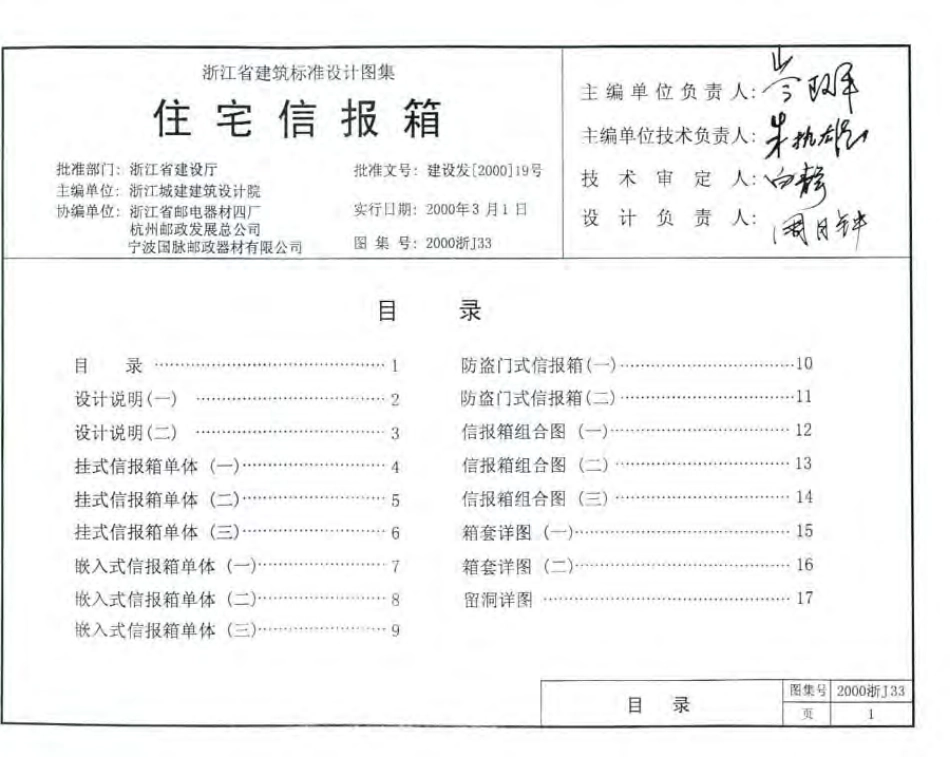 浙江省建筑标准设计图集
住宅信报箱
批准部门: 浙江省建设厅
主编单位: 浙江城建建筑设计院
协编单位: 浙江省邮电器材四厂
杭州邮政发展总公司
宁波国脉邮政器材有限公司
批准文号: 建设发[2000]19号
实行日期: 2000年3月1日
图集号: 2000浙J33
主编单位负责人:
主编单位技术负责人:
技术审定人: 白静
设计负责人: 周月钟
目 录
目 录 …… 1
设计说明(一) …… 2
设计说明(二) …… 3
挂式信报箱单体 (一)…… 4
挂式信报箱单体 (二)…… 5
挂式信报箱单体 (三)…… 6
嵌入式信报箱单体 (一)…… 7
嵌入式信报箱单体 (二)…… 8
嵌入式信报箱单体 (三)…… 9
防盗门式信报箱(一)……10
防盗门式信报箱(二)……11
信报箱组合图 (一)…… 12
信报箱组合图 (二)…… 13
信报箱组合图 (三)…… 14
箱套详图 (一)…… 15
箱套详图 (二)…… 16
留洞详图 …… 17
目 录
图集号 2000浙J33
页 1